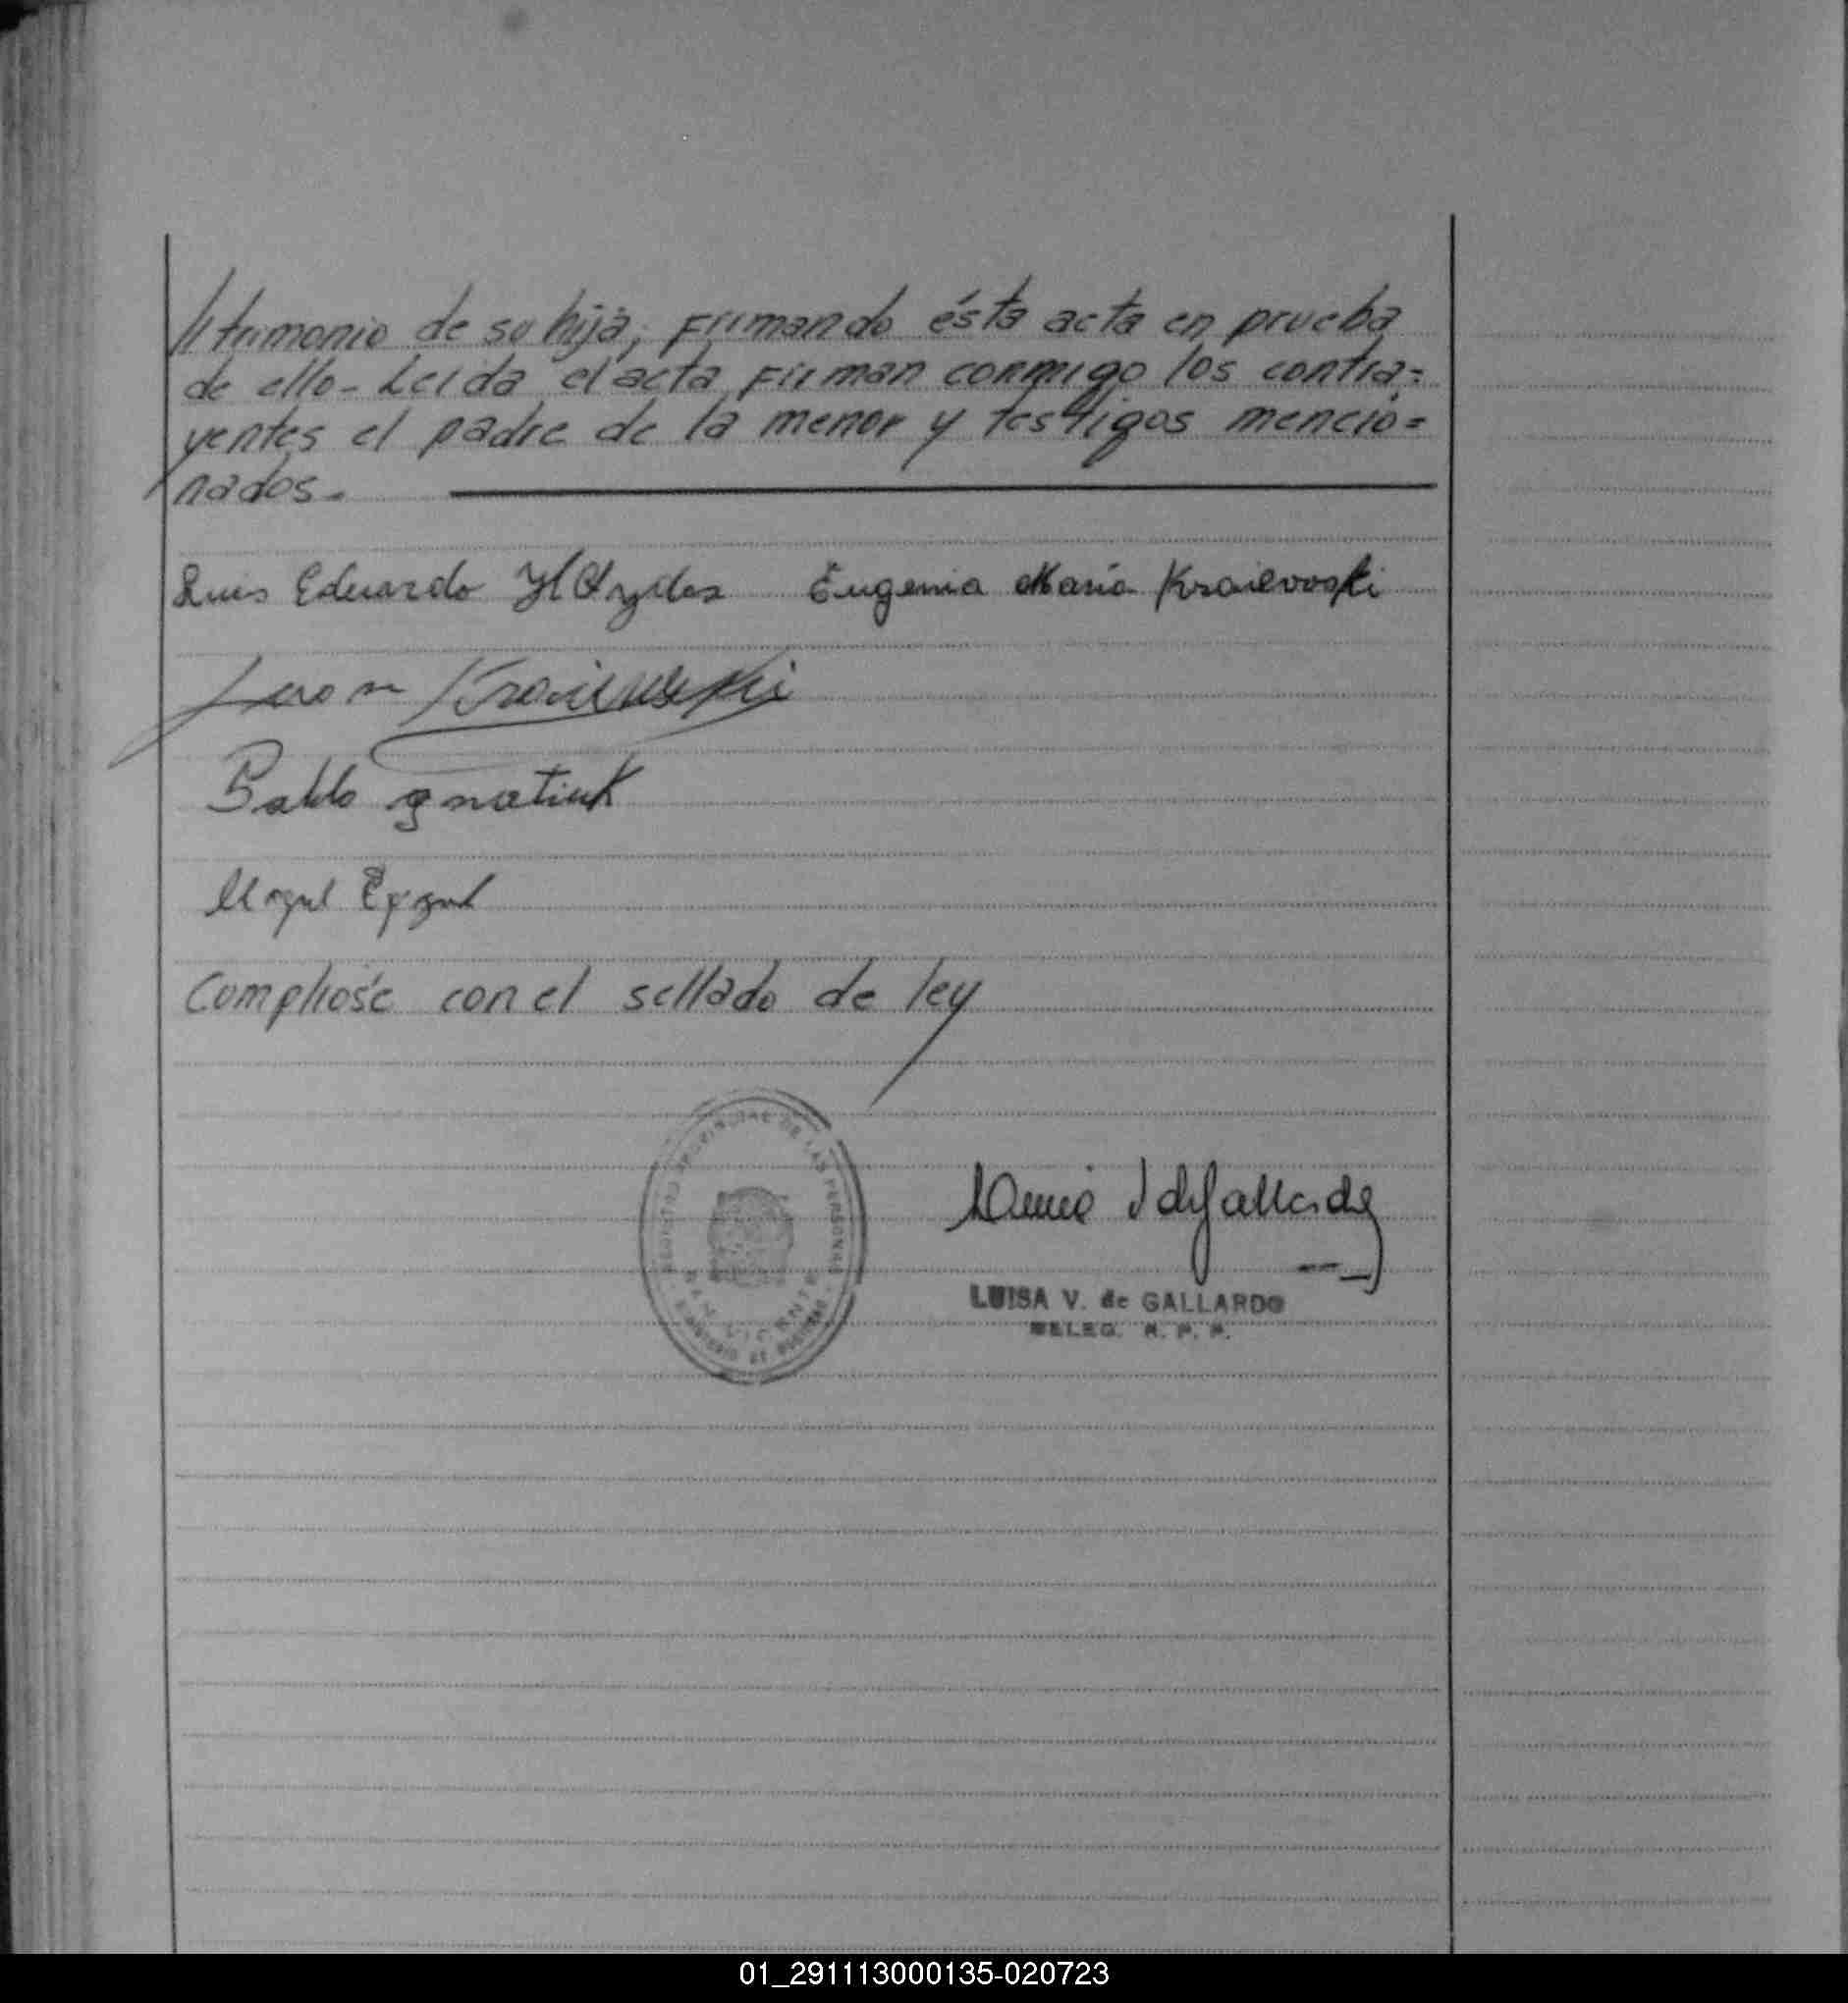 //trimonio de su hija, Firmando ésta acta en prueba
de ello- Leida el acta Firman conmigo los contra=
yentes el padre de la menor y testigos mencio=
nados.
Luis Eduardo Eugenia María Kraievoski
Kraievoski
Pablo Ignatiuk
Cumplióse con el sellado de ley
REGISTRO PROVINCIAL DE LAS PERSONAS
SAN VICENTE
MINISTERIO DE GOBIERNO
LUISA V. de GALLARDO
DELEG. R. P. P.
01_291113000135-020723